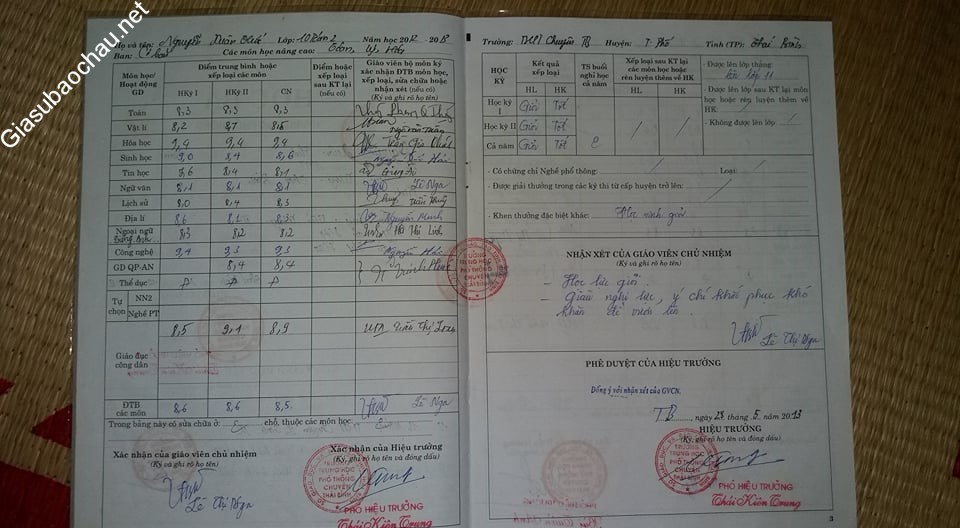 Giasubaochau.net
Họ và tên: Nguyễn Xuân Lớp: 10 Toán 2 Năm học 2012 2013
Ban: Các môn học nâng cao: Toán, Lý, Hóa
Môn học/ Hoạt động GD
Điểm trung bình hoặc xếp loại các môn
Điểm hoặc xếp loại sau KT lại (nếu có)
Giáo viên bộ môn ký xác nhận ĐTB môn học, xếp loại, sửa chữa hoặc nhận xét (nếu có)
(Ký và ghi rõ họ tên)
HKỳ I HKỳ II CN
Toán 8,3 8,3 8,3
Vật lí 8,2 8,7 8,5
Hóa học 9,4 9,4 9,4
Sinh học 9,0 8,4 8,6
Tin học 7,6 8,4 8,1
Ngữ văn 8,1 8,1 8,1 Lê Nga
Lịch sử 8,0 8,4 8,3
Địa lí 8,6 8,1 8,3
Ngoại ngữ 8,3 8,2 8,2 Hà Thị Linh
Công nghệ 9,4 9,3 9,3
GD QP-AN 8,4 8,4
Thể dục Đ Đ Đ
Tự chọn
NN2
Nghề PT
Giáo dục công dân 8,5 9,1 8,9
ĐTB các môn 8,6 8,6 8,5 Lê Nga
Trong bảng này có sửa chữa ở: chỗ, thuộc các môn học:
Xác nhận của giáo viên chủ nhiệm
(Ký, ghi rõ họ tên)
Lê Thị Nga
Xác nhận của Hiệu trưởng
(Ký, ghi rõ họ tên và đóng dấu)
PHÓ HIỆU TRƯỞNG
Thái Kiên Trung
Trường: THPT Chuyên TB Huyện: T. Phố Tỉnh (TP): Thái Bình
HỌC KỲ
Kết quả xếp loại
TS buổi nghỉ học cả năm
Xếp loại sau KT lại các môn học hoặc rèn luyện thêm về HK
HL HK HL HK
Học kỳ I Giỏi Tốt
Học kỳ II Giỏi Tốt
Cả năm Giỏi Tốt
- Được lên lớp thẳng:
lên lớp 11
- Được lên lớp sau KT lại môn học hoặc rèn luyện thêm về HK:
- Không được lên lớp
- Có chứng chỉ Nghề phổ thông: Loại:
- Được giải thưởng trong các kỳ thi từ cấp huyện trở lên:
- Khen thưởng đặc biệt khác: Học sinh giỏi
NHẬN XÉT CỦA GIÁO VIÊN CHỦ NHIỆM
(Ký và ghi rõ họ tên)
- Học lực giỏi.
- Giàu nghị lực, ý chí khắc phục khó
khăn để vươn lên.
Lê Thị Nga
PHÊ DUYỆT CỦA HIỆU TRƯỞNG
Đồng ý với nhận xét của GVCN.
TB, ngày 28 tháng 5 năm 2013
HIỆU TRƯỞNG
(Ký, ghi rõ họ tên và đóng dấu)
TRƯỜNG TRUNG HỌC PHỔ THÔNG CHUYÊN THÁI BÌNH
PHÓ HIỆU TRƯỞNG
Thái Kiên Trung
3